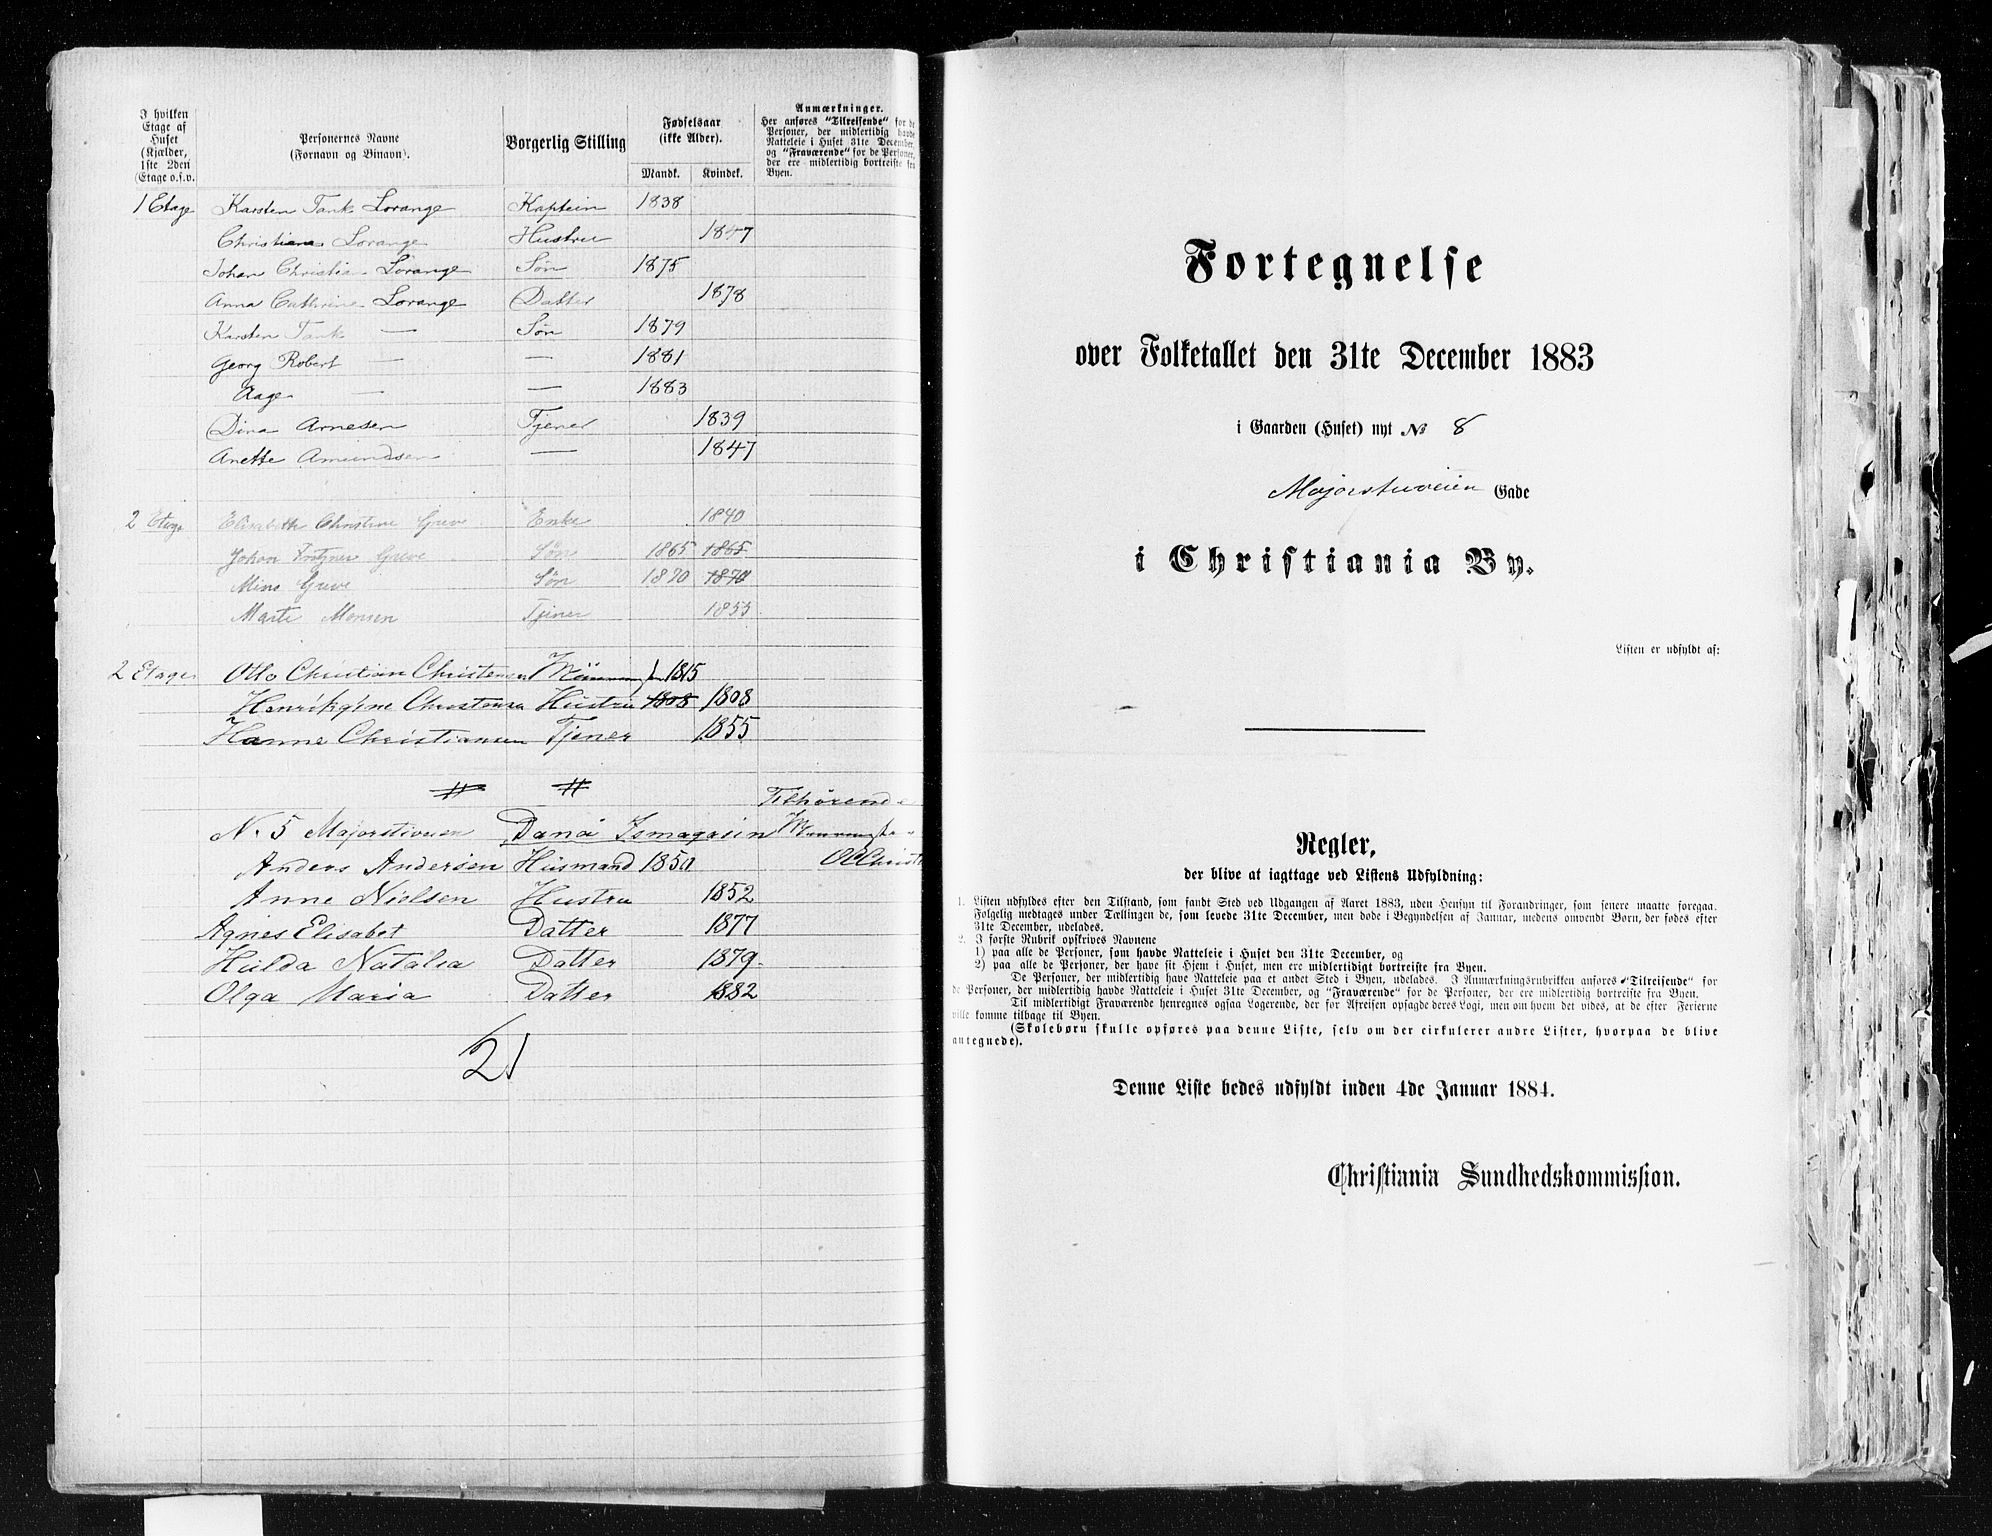 I hvilken Etage af Huset (Kjælder, 1ste 2den Etage o.s.v.
Personernes Navne (Fornavn og Binavn).
Borgerlig Stilling
Fødselsaar (ikke Alder).
Mandk. Kvindek.
Anmærkninger.
Her anføres "Tilreisende" for de Personer, der midlertidig havde Natteleie i Huset 31te December, og "Fraværende" for de Personer, der ere midlertidig bortreiste fra Byen.
1 Etage Karsten Tank Lorange Kaptein 1838
Christiane Lorange Hustru 1847
Johan Christia Lorange Søn 1875
Anna Cathrine Lorange Datter 1878
Karsten Tank — Søn 1879
Georg Robert — — 1881
Aage — — 1883
Dina Arnesen Tjener 1839
Anette Amundsen — 1847
2 Etage Elisabeth Christine Greve Enke 1840
Johan Fritzner Greve Søn 1865 1865
Mins Greve Søn 1870 1870
Marte Monsen Tjener 1855
2 Etage Otto Christian Christensen 1815
Henrikgine Christensen Hustru 1808 1808
Hanne Christiansen Tjener 1855
Tilhørende
N. 5 Majorstuveien Dana Ismagasin
Anders Andersen Husmand 1850 OCChrist
Anne Nielsen Hustru 1852
Agnes Elisabet Datter 1877
Hulda Natalia Datter 1879
Olga Maria Datter 1882
21
Fortegnelse
over Folketallet den 31te December 1883
i Gaarden (Huset) nyt № 8
Majorstuveien Gade
i Christiania By.
Listen er udfyldt af:
Regler,
der blive at iagttage ved Listens Udfyldning:
1. Listen udfyldes efter den Tilstand, som fandt Sted ved Udgangen af Aaret 1883, uden Hensyn til Forandringer, som senere maatte foregaa.
Følgelig medtages under Tællingen de, som levede 31te December, men døde i Begyndelsen af Januar, medens omvendt Børn, der fødes efter
31te December, udelades.
2. I første Rubrik opskrives Navnene
1) paa alle de Personer, som havde Natteleie i Huset den 31te December, og
2) paa alle de Personer, der have sit Hjem i Huset, men ere midlertidigt bortreiste fra Byen.
De Personer, der midlertidig have Natteleie paa et andet Sted i Byen, udelades. I Anmærkningsrubrikken anføres "Tilreisende" for
de Personer, der midlertidig havde Natteleie i Huset 31te December, og "Fraværende" for de Personer, der ere midlertidig bortreiste fra Byen.
Til midlertidigt Fraværende henregnes ogsaa Logerende, der før Afreisen opsagde deres Logi, men om hvem det vides, at de efter Ferierne
ville komme tilbage til Byen.
(Skolebørn skulle opføres paa denne Liste, selv om der cirkulerer andre Lister, hvorpaa de blive
antegnede).
Denne Liste bedes udfyldt inden 4de Januar 1884.
Christiania Sundhedskommission.